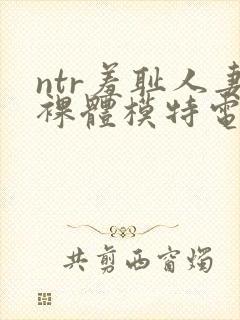 ntr羞耻人妻
裸體模特電
共剪西窗燭